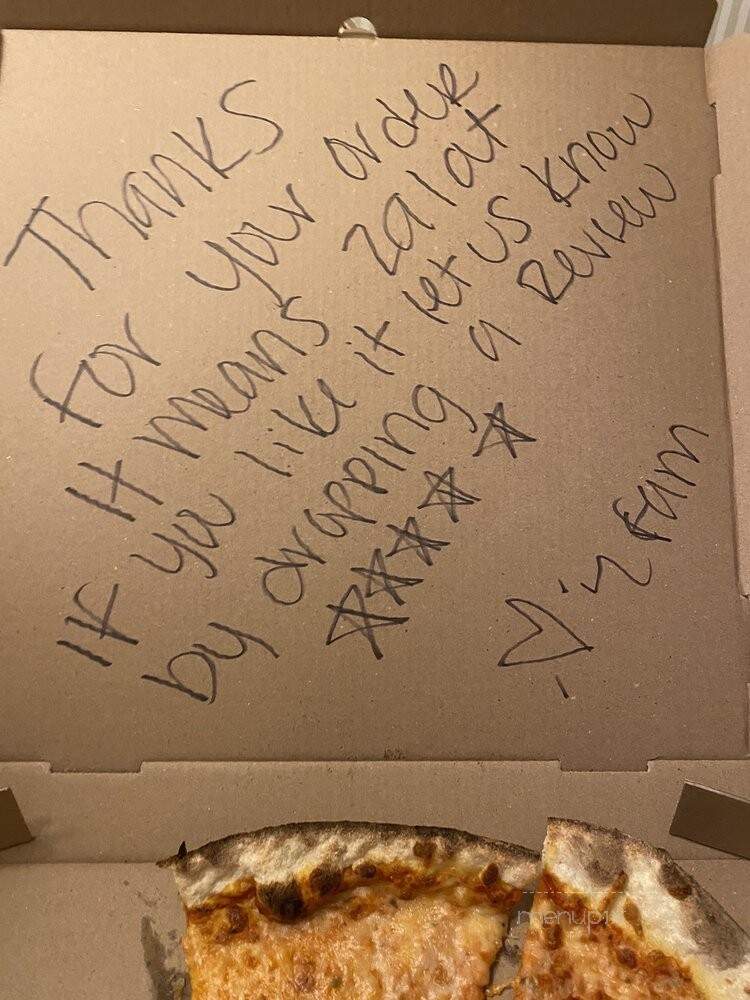 Thanks
for your order
It means zalat
If you like it let us know
by dropping a Review
☆☆☆☆☆
-♡ 'z fam
menupix